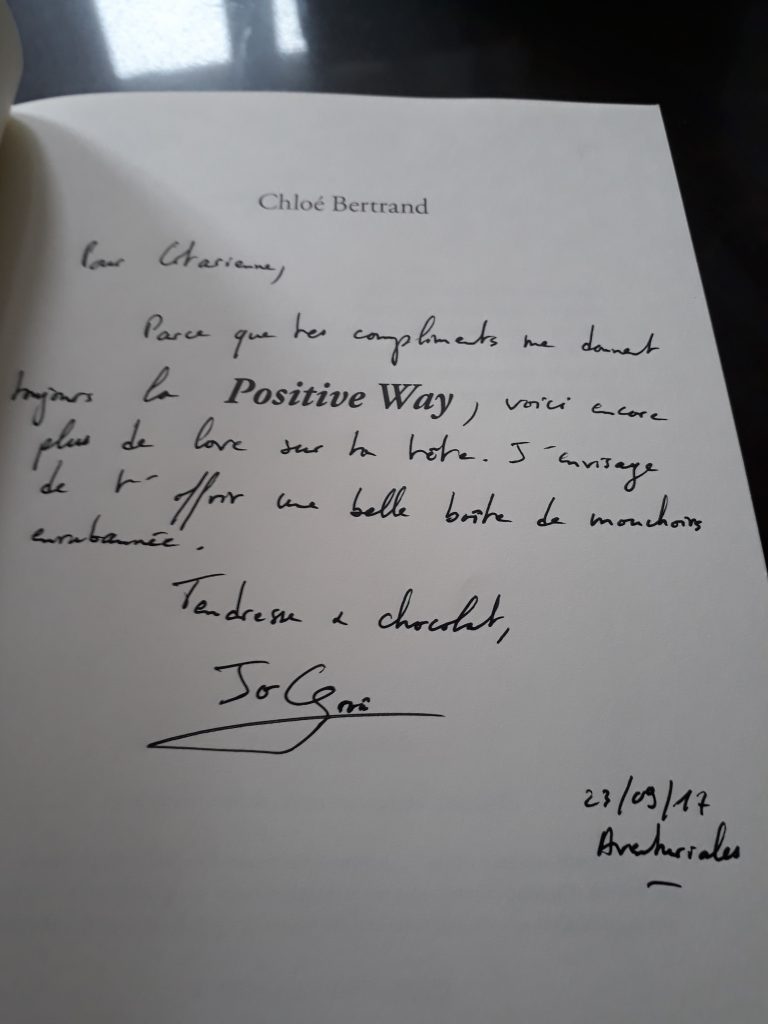 Chloé Bertrand
Pour
Parce que tes compliments me donnent
toujours la Positive Way, voici encore
plus de love sur ta tête. J'envisage
de t'offrir une belle boîte de mouchoirs
enrubannée.
Tendresse & chocolat,
23/09/17
Aventuriales